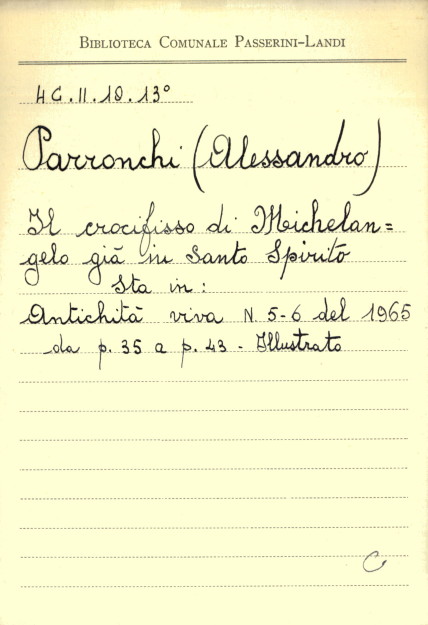 BIBLIOTECA COMUNALE PASSERINI-LANDI
4C.II.10.13°
Parronchi (Alessandro)
Il crocifisso di Michelan=
gelo già in Santo Spirito
Sta in:
Antichità viva N. 5-6 del 1965
da p. 35 a p. 43 - Illustrato
C